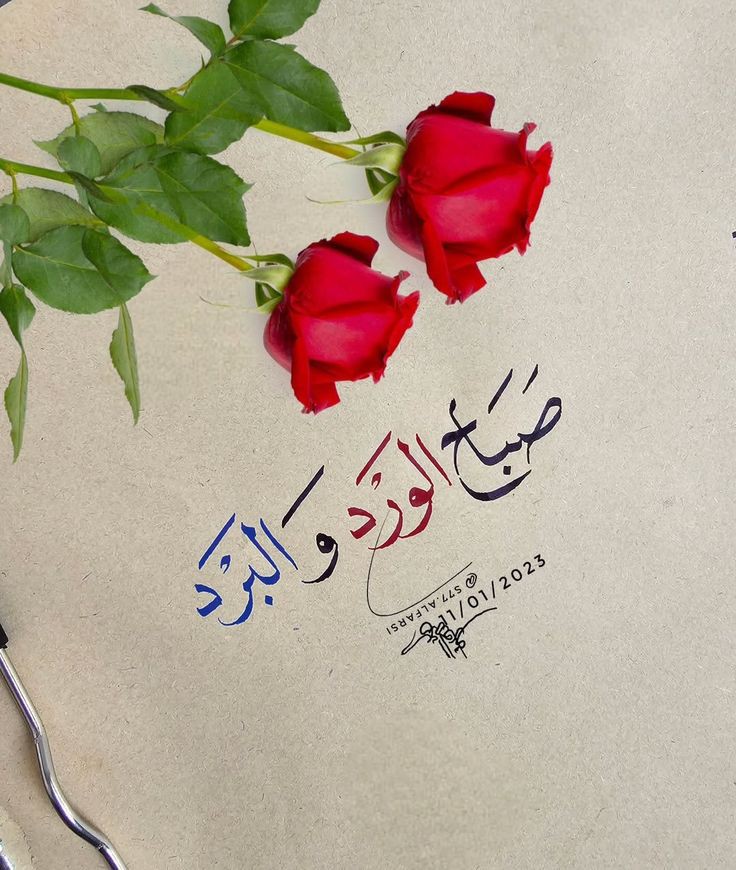 صَبَاح الوَرْد وَ البَرْد
@S77.ALFARSI
11/01/2023